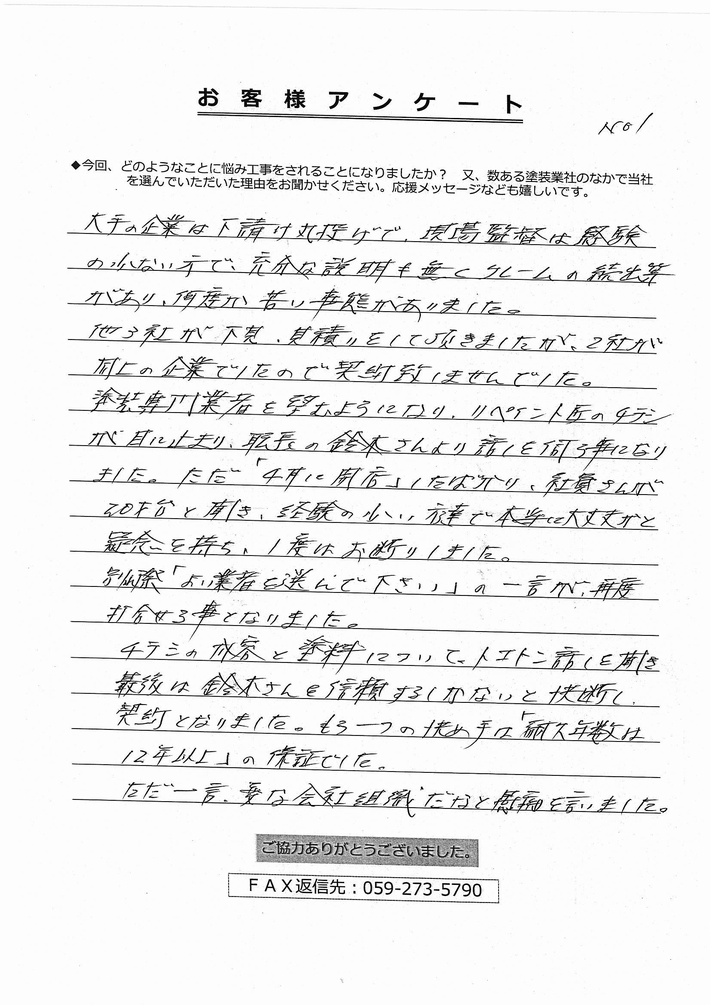 お客様アンケート
No1
◆今回、どのようなことに悩み工事をされることになりましたか？　又、数ある塗装業社のなかで当社
を選んでいただいた理由をお聞かせください。応援メッセージなども嬉しいです。
大手の企業は下請け丸投げで、現場監督は経験
の少ない方で、充分な説明も無くクレームの続出等
があり、何度か苦い事態がありました。
他3社が下見、見積りをして頂きましたが、2社が
同上の企業でしたので契約致しませんでした。
塗装専門業者を望むようになり、リペイント匠のチラシ
が目に止まり、店長の鈴木さんより話しを伺う事になり
ました。ただ「4月に開店」したばかり、社員さんが
20才台と聞き、経験の少い方達で本当に大丈夫かと
疑念を持ち、1度はお断りしました。
別際「よい業者を選んで下さい」の一言が、再度
打合せる事となりました。
チラシの内容と塗料について、トコトン話しを聞き
最後は鈴木さんを信頼するしかないと決断し、
契約となりました。もう一つの決め手は「耐久年数は
12年以上」の保証でした。
ただ一言、変な会社組織だなと愚痴を言いました。
ご協力ありがとうございました。
ＦＡＸ返信先：059-273-5790